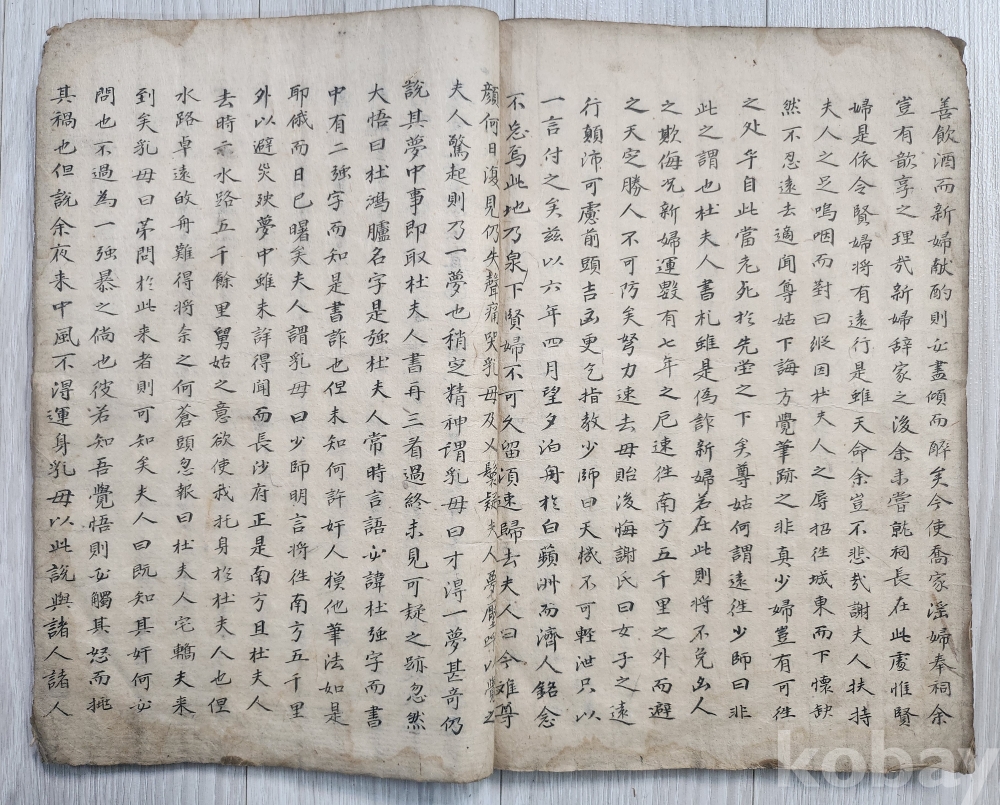 善飮酒而新婦献酌則必盡傾而醉矣今使喬家淫婦奉祠余
豈有歆享之理哉新婦辞家之後余未嘗就祠長在此處惟賢
婦是依今賢婦將有遠行是雖天命余豈不悲哉謝夫人扶持
夫人之足嗚咽而對曰縱因杜夫人之辱招徃城東而下懷缺
然不忍遠去適聞尊姑下誨方覺筆跡之非真少婦豈有可徃
之处乎自此當老死於先塋之下矣尊姑何謂遠徃少師曰非
此之謂也杜夫人書札雖是偽詐新婦若在此則將不免凶人
之欺侮况新婦運數有七年之厄速徃南方五千里之外而避
之天定勝人不可防矣努力速去毋貽後悔謝氏曰女子之遠
行顛沛可慮前頭吉凶更乞指教少師曰天機不可輕泄只以
一言付之矣玆以六年四月望夕泊舟於白蘋洲而濟人銘念
不忘焉此地乃泉下賢婦不可久留須速歸去夫人曰今难尊
顔何日復見仍失聲痛哭乳母及丫鬟疑夫人夢壓呼以覺之
夫人驚起則乃一夢也稍定精神謂乳母曰才得一夢甚奇仍
說其夢中事即取杜夫人書再三看過終未見可疑之跡忽然
大悟曰杜鴻臚名字是強杜夫人常時言語必諱杜強字而書
中有二強字而知是書詐也但未知何許奸人模他筆法如是
耶俄而日已曙矣夫人謂乳母曰少師明言將徃南方五千里
外以避灾殃夢中雖未詳得聞而長沙府正是南方且杜夫人
去時示水路五千餘里舅姑之意欲使我托身於杜夫人也但
水路卓遠的舟難得將余之何蒼頭忽報曰杜夫人宅轎夫来
到矣乳母曰苐問於此来者則可知矣夫人曰既知其奸何必
問也不過為一強暴之倘也彼若知吾覺悟則必觸其怒而挑
其禍也但說余夜来中風不得運身乳母以此說與諸人諸人
kobay